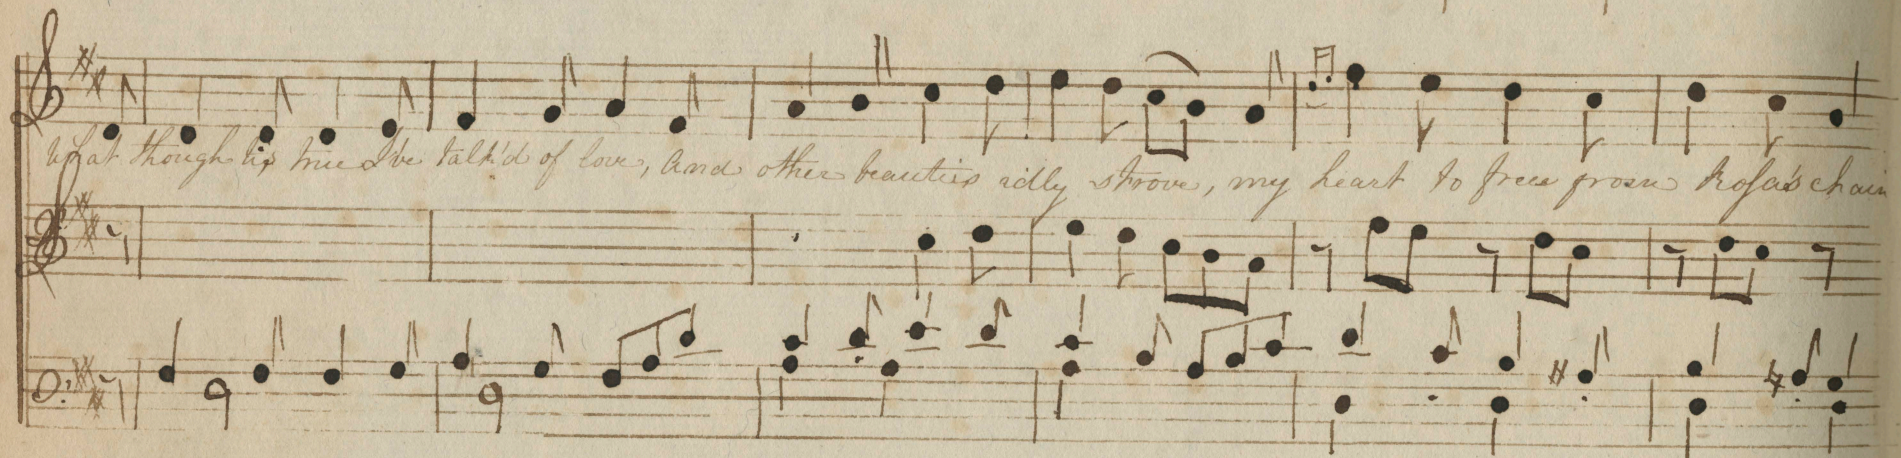 What though tis true I've talk'd of love, And other beauties idly strove, my heart to free from Rosa's chain